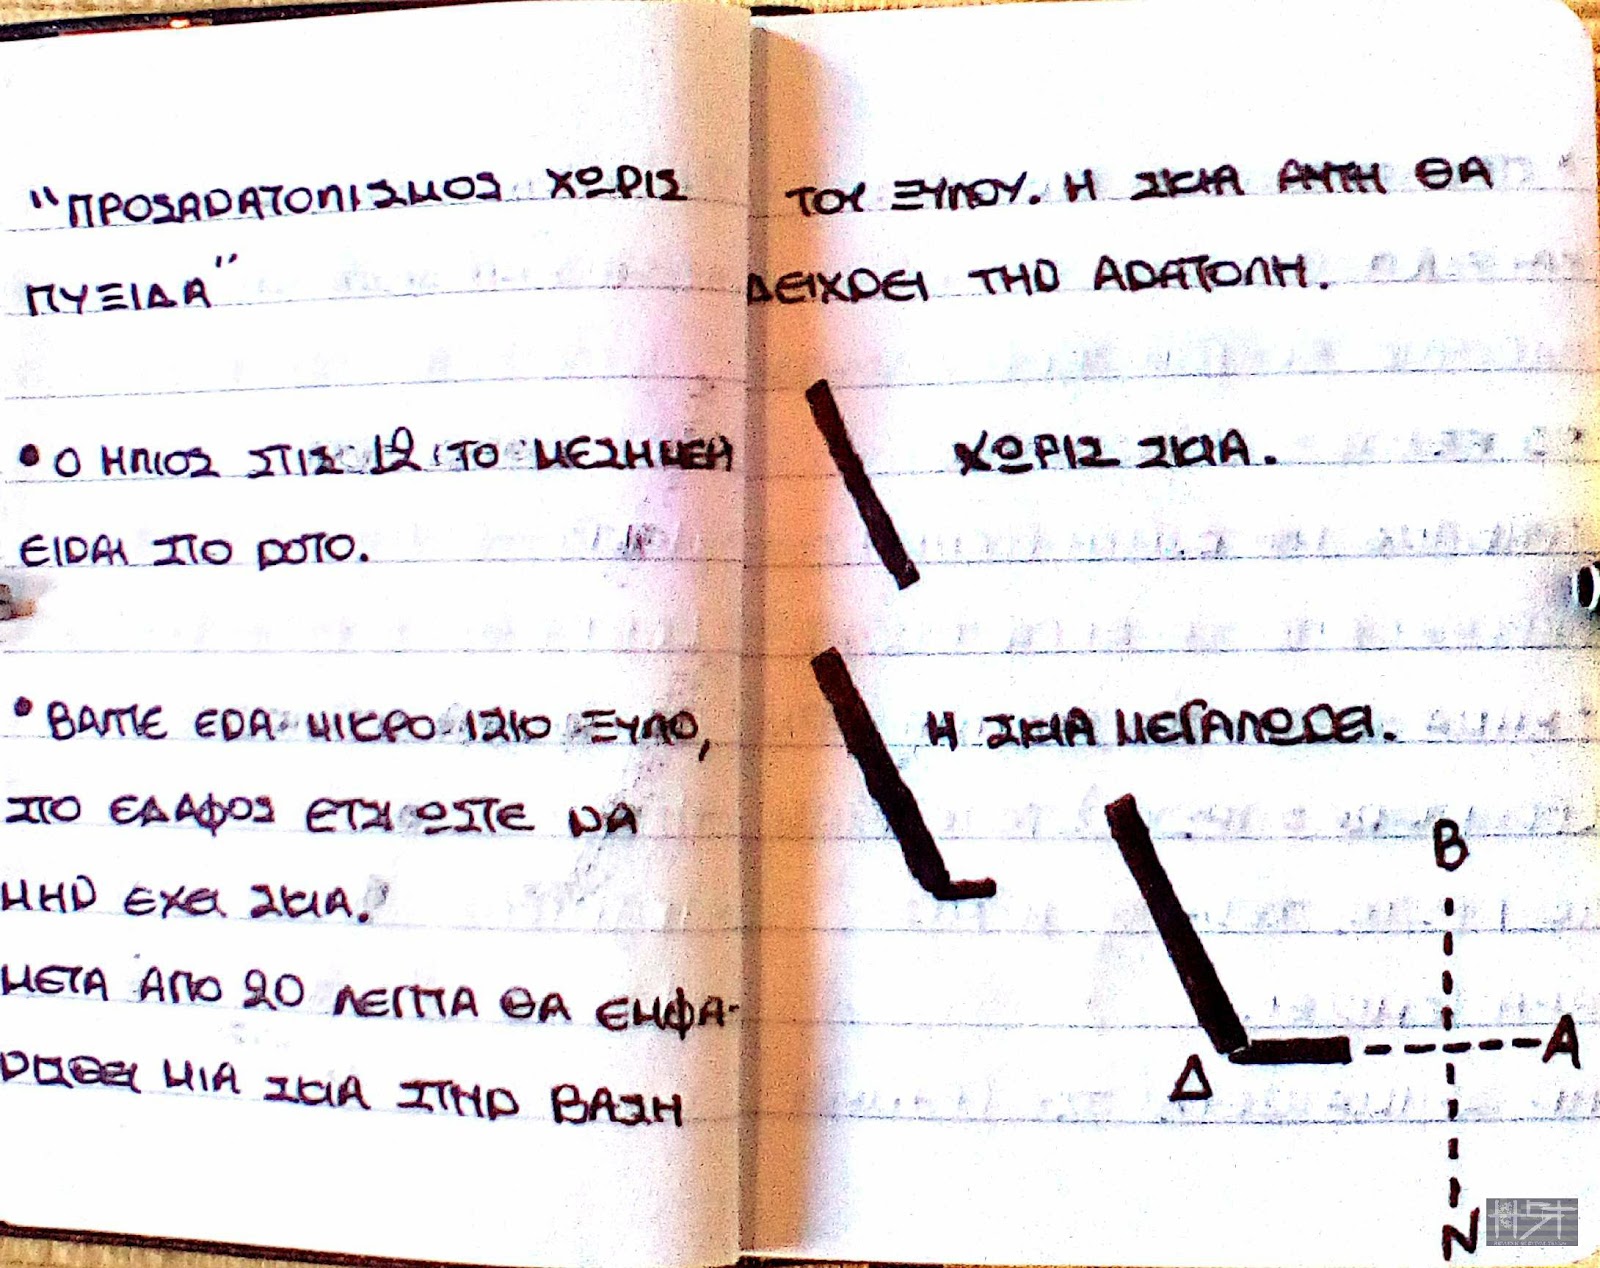 "ΠΡΟΣΑΝΑΤΟΛΙΣΜΟΣ ΧΩΡΙΣ
ΠΥΞΙΔΑ"
• Ο ΗΛΙΟΣ ΣΤΙΣ 12 ΤΟ ΜΕΣΗΜΕΡΙ
ΕΙΝΑΙ ΣΤΟ ΝΟΤΟ.
• ΒΑΛΤΕ ΕΝΑ ΜΙΚΡΟ ΙΣΙΟ ΞΥΛΟ,
ΣΤΟ ΕΔΑΦΟΣ ΕΤΣΙ ΩΣΤΕ ΝΑ
ΜΗΝ ΕΧΕΙ ΣΚΙΑ.
ΜΕΤΑ ΑΠΟ 20 ΛΕΠΤΑ ΘΑ ΕΜΦΑ-
ΝΙΣΘΕΙ ΜΙΑ ΣΚΙΑ ΣΤΗΝ ΒΑΣΗ
ΤΟΥ ΞΥΛΟΥ. Η ΣΚΙΑ ΑΥΤΗ ΘΑ
ΔΕΙΧΝΕΙ ΤΗΝ ΑΝΑΤΟΛΗ.
ΧΩΡΙΣ ΣΚΙΑ.
Η ΣΚΙΑ ΜΕΓΑΛΩΝΕΙ.
Β
Δ Α
Ν